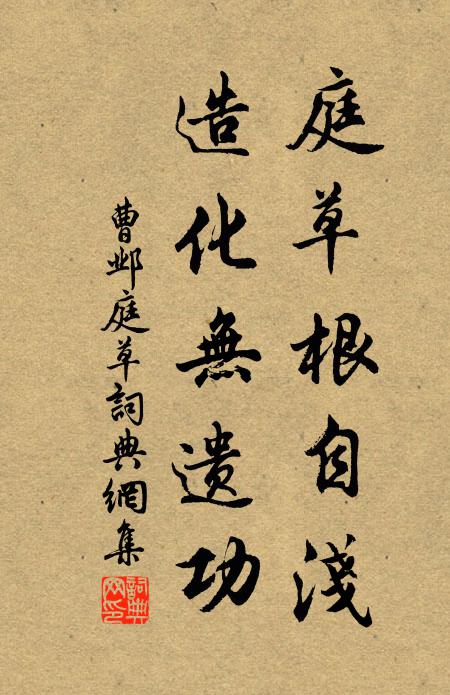 庭草根自淺
造化無遺功
曹邺庭草詞典網集
詞典網印